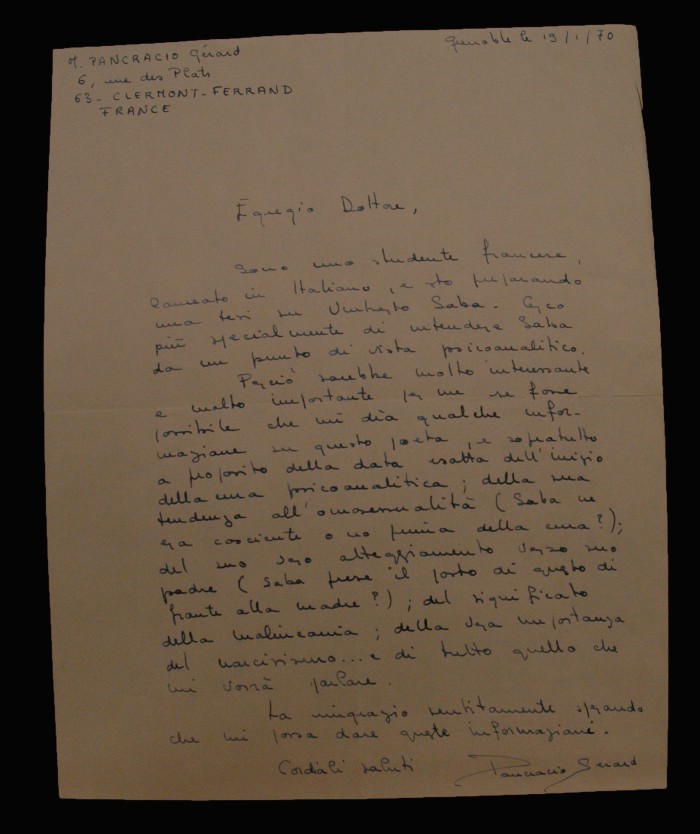 M. PANCRACIO Gérard
6, rue des Plats
63 - CLERMONT-FERRAND
FRANCE
Grenoble le 19/1/70
Egregio Dottore,
Sono uno studente francese,
laureato in Italiano, e sto preparando
una tesi su Umberto Saba. Cerco
più specialmente di intendere Saba
da un punto di vista psicoanalitico.
Perciò sarebbe molto interessante
e molto importante per me se fosse
possibile che mi dia qualche infor-
mazione su questo poeta, e sopratutto
a proposito della data esatta dell'inizio
della cura psicoanalitica; della sua
tendenza all'omosessualità (Saba ne
era cosciente o no prima della cura?);
del suo vero atteggiamento verso suo
padre (Saba prese il posto di questo di
fronte alla madre?); del significato
della malinconia; della vera importanza
del narcisismo... e di tutto quello che
mi vorrà parlare.
La ringrazio sentitamente sperando
che mi possa dare queste informazioni.
Cordiali saluti Pancracio Gérard